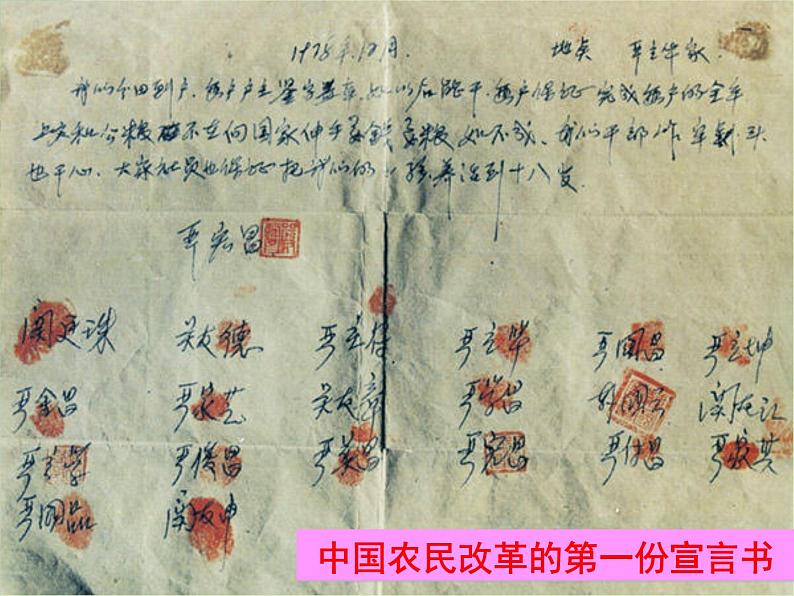 1978年12月. 地点 严立华家
我们分田到户.每户户主签字盖章.如以后能干.每户保证完成每户的全年
上交和公粮不在向国家伸手要钱要粮如不成.我们干部作牢剎头
也干心.大家社员也保证把我们的小孩养活到十八岁.
严宏昌
关廷珠 关友德 严立符 严立华 严国昌 严立坤
严金昌 严家芝 关友章 严学昌 韩国云 关友江
严立学 严俊昌 严美昌 严宏昌 严付昌 严家其
严国品 关友申
中国农民改革的第一份宣言书